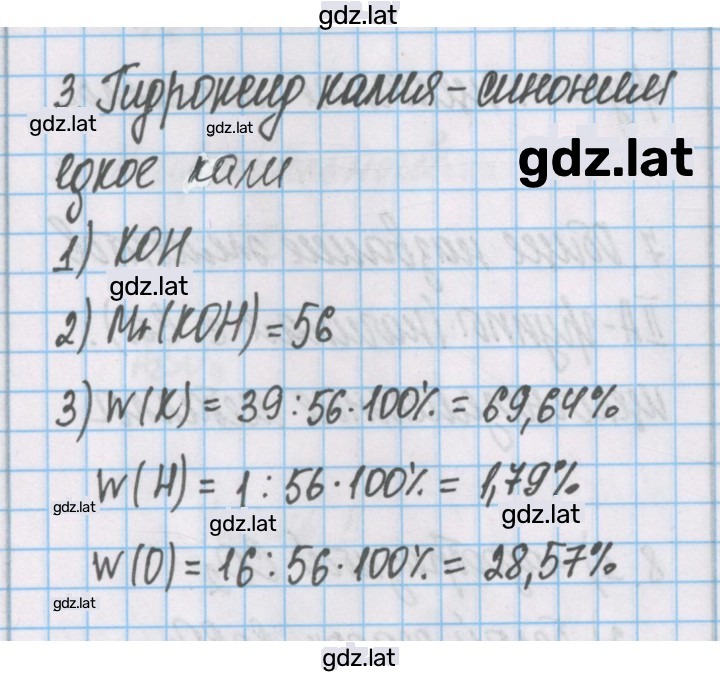 gdz.lat
3. Гидроксид калия - синоним
gdz.lat
gdz.lat
gdz.lat
едкое кали
1) KOH
gdz.lat
2) Mr(KOH) = 56
3) W(K) = 39 : 56 · 100% = 69,64%
W(H) = 1 : 56 · 100% = 1,79%
gdz.lat
gdz.lat
gdz.lat
W(O) = 16 : 56 · 100% = 28,57%
gdz.lat
gdz.lat